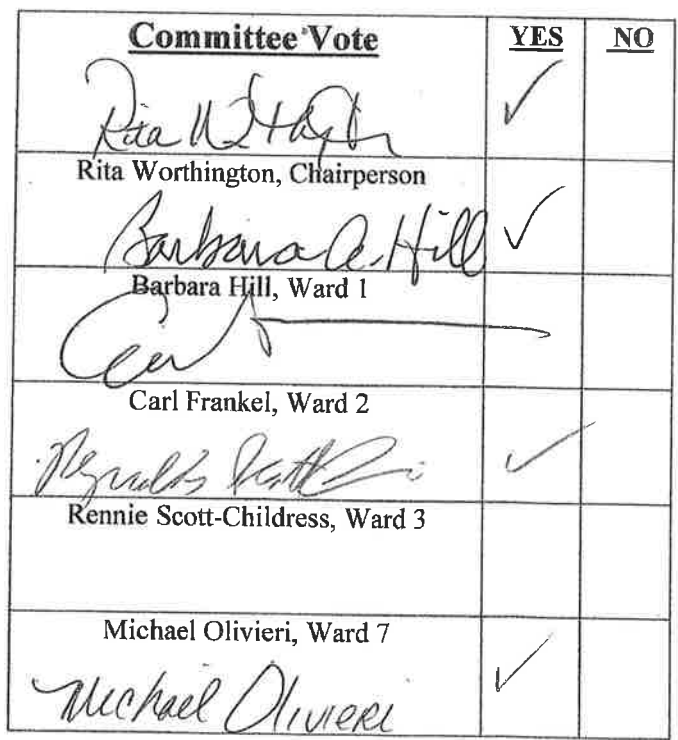 Committee Vote YES NO
Rita
Rita Worthington, Chairperson
Barbara A. Hill
Barbara Hill, Ward 1
Carl Frankel, Ward 2
Rennie Scott-Childress, Ward 3
Michael Olivieri, Ward 7
Michael Olivieri